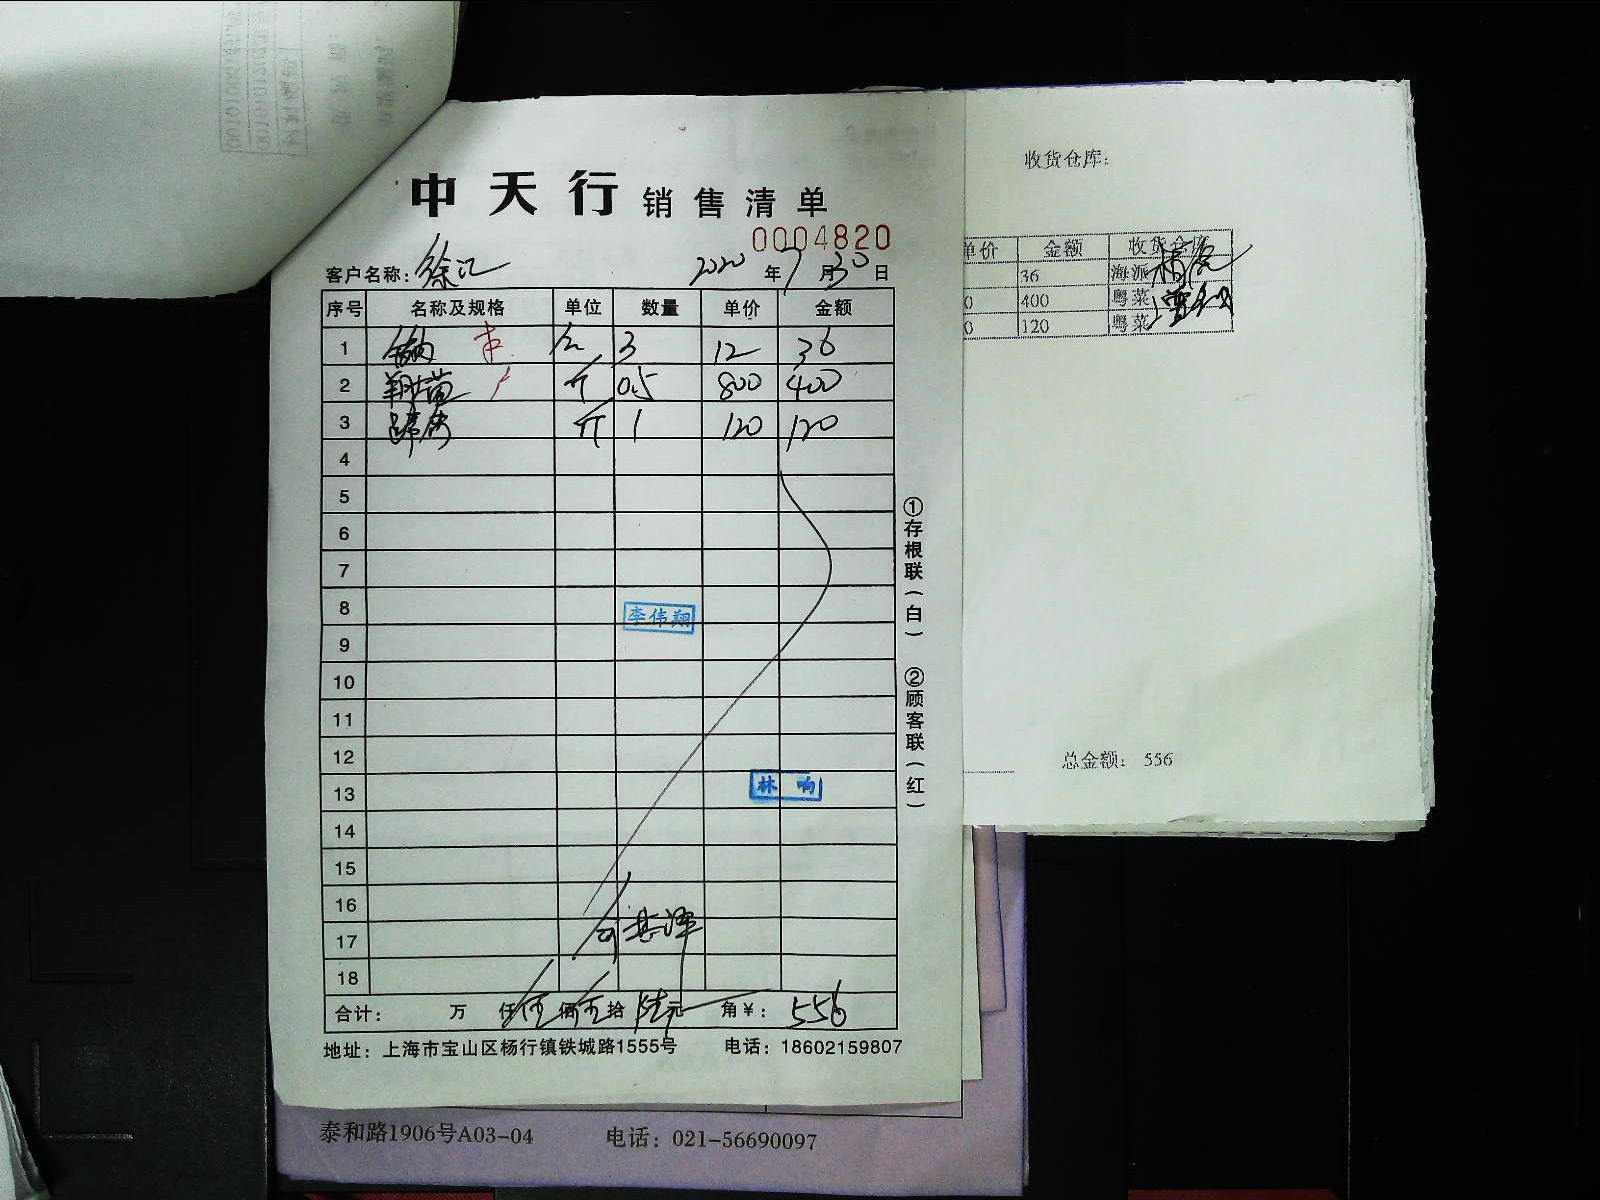 中天行 销售清单
0004820
客户名称: 徐汇 2020 年 7 月 30 日
序号 名称及规格 单位 数量 单价 金额
1 3 12 36
2 斤 0.5 800 400
3 斤 1 120 120
4
5
6
7
8
9
10
11
12
13
14
15
16
17
18
李伟翔
林响
合计: 万 仟 伍 佰 伍 拾 陆 元 角 ¥: 556
地址: 上海市宝山区杨行镇铁城路1555号 电话: 18602159807
①存根联(白) ②顾客联(红)
收货仓库:
单价 金额 收货仓库
36 海派
0 400 粤菜
0 120 粤菜
总金额: 556
泰和路1906号A03-04 电话: 021-56690097